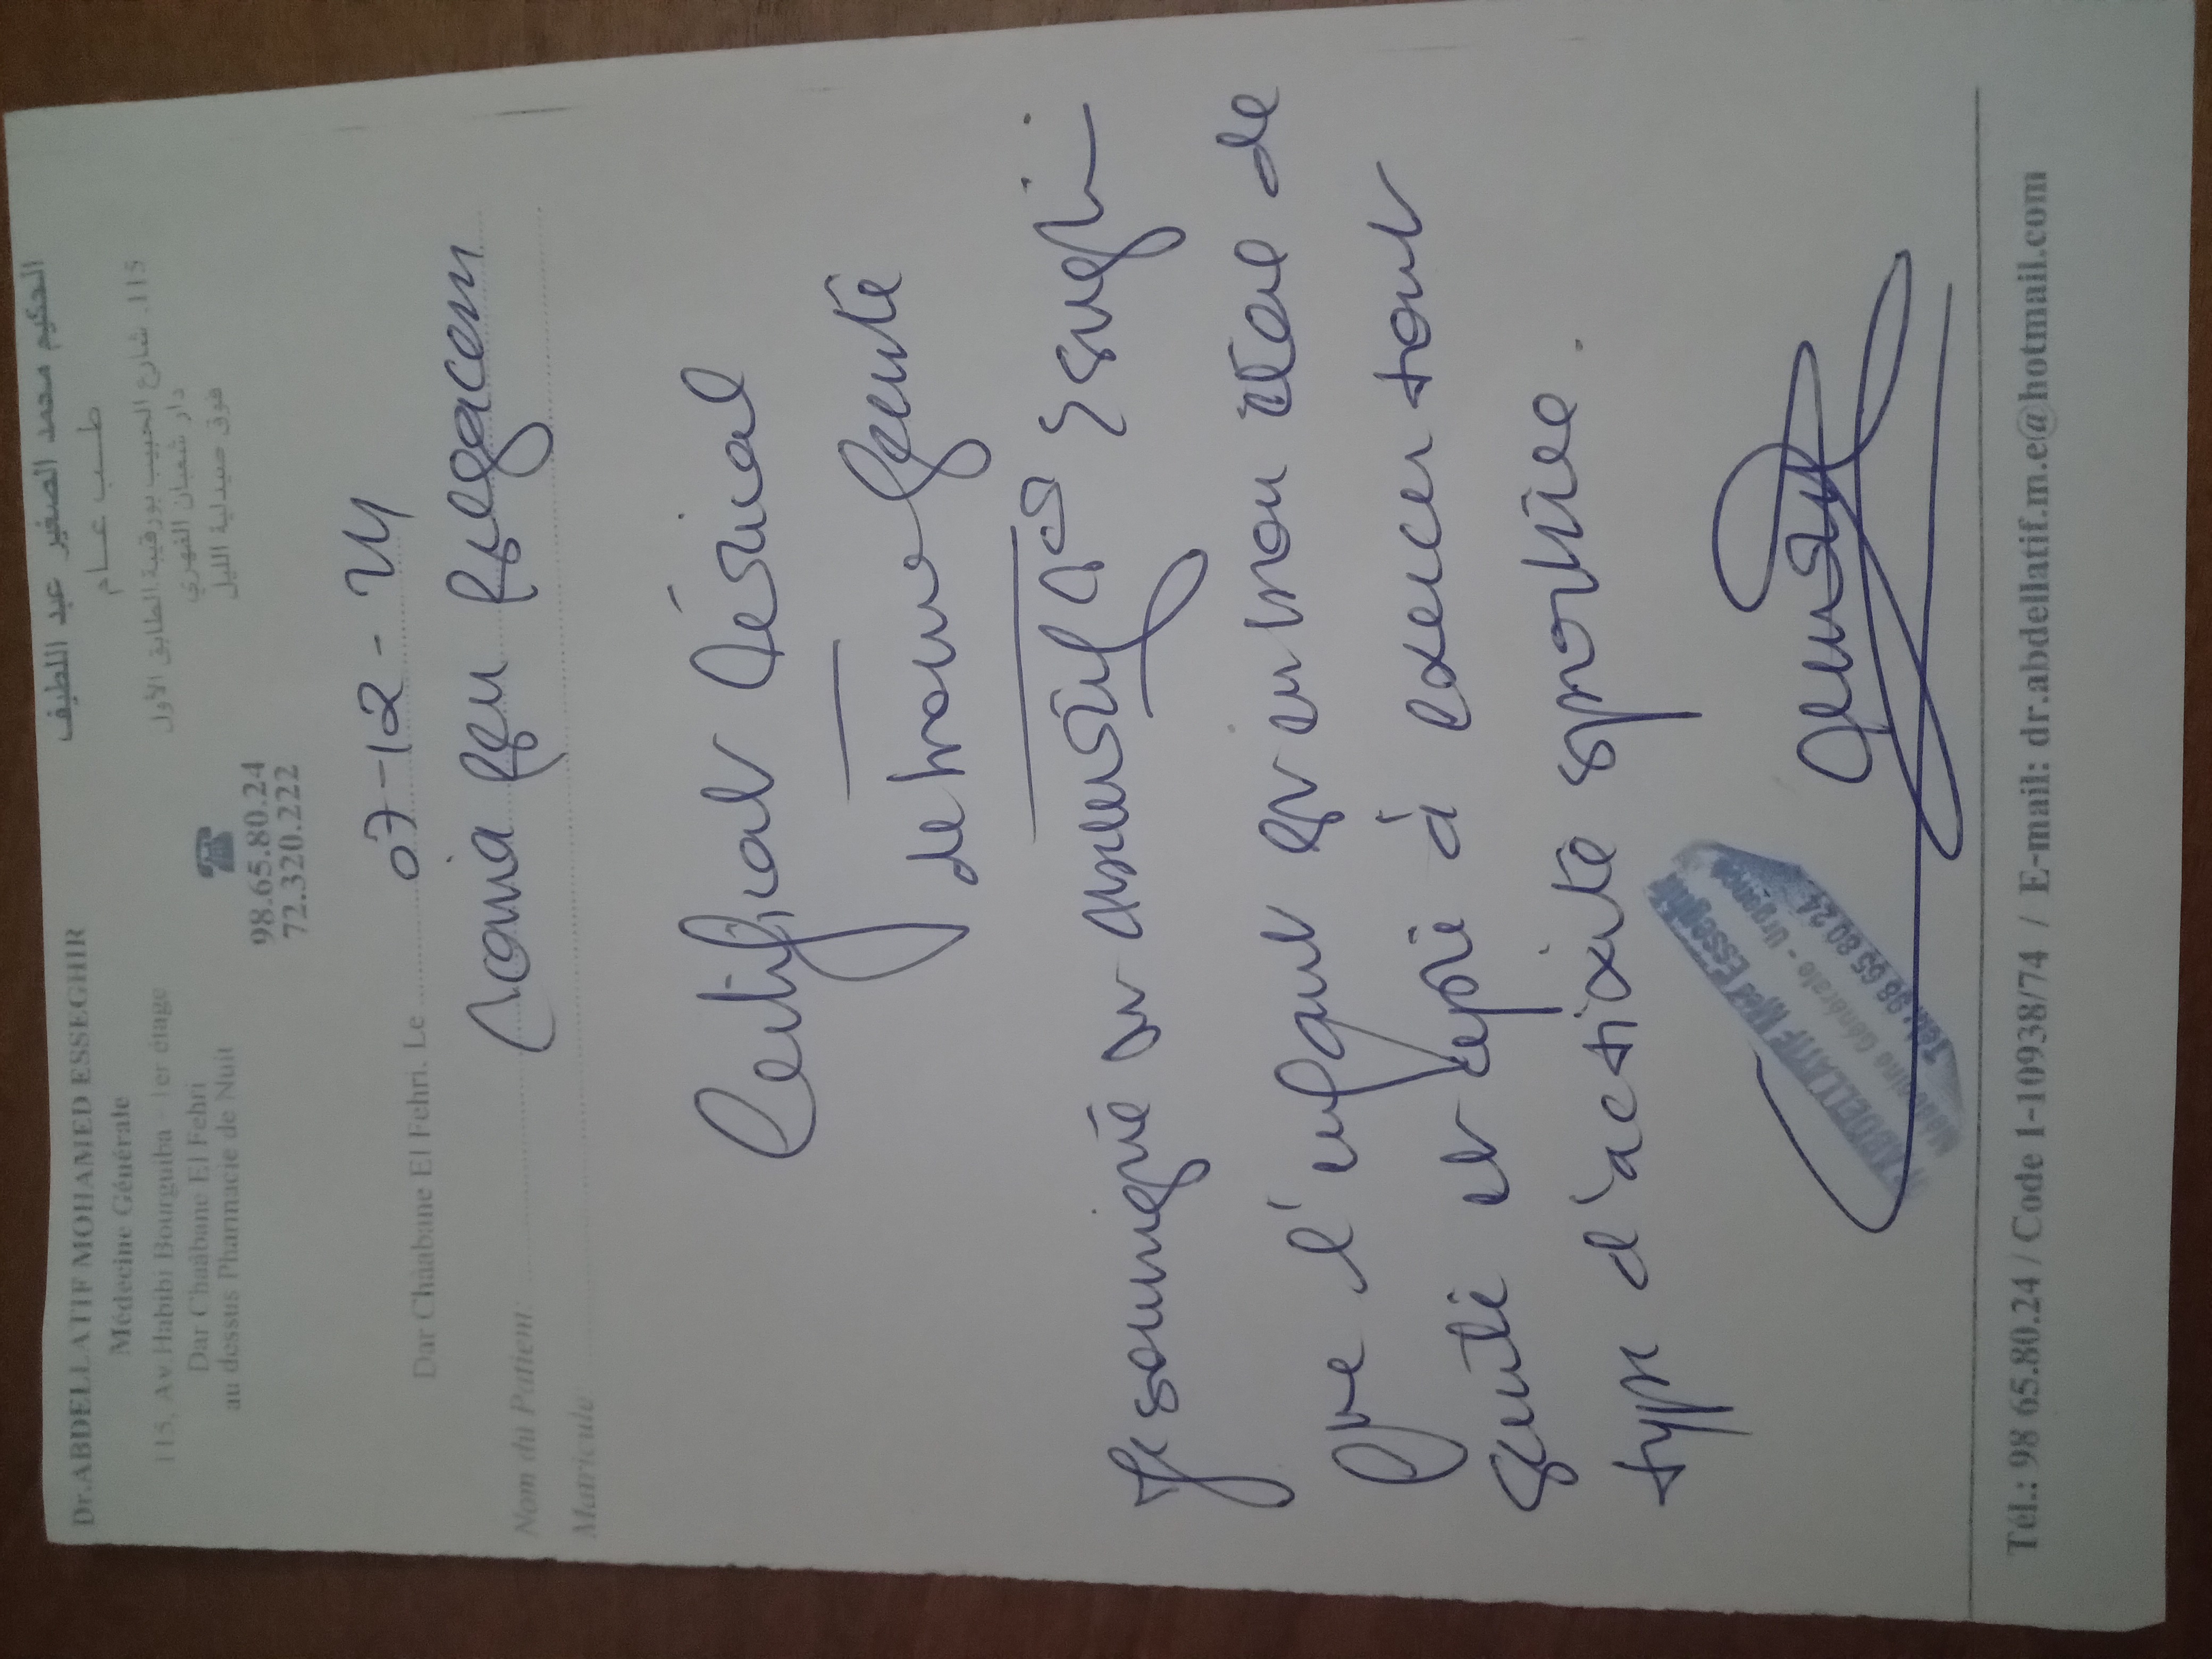 Dr.ABDELLATIF MOHAMED ESSEGHIR
Médecine Générale
115, Av.Habibi Bourguiba - 1er étage
Dar Chaâbane El Fehri
au dessus Pharmacie de Nuit
الحكيم محمد الصغير عبد اللطيف
طب عام
115، شارع الحبيب بورقيبة الطابق الأول
دار شعبان الفهري
فوق صيدلية الليل
98.65.80.24
72.320.222
Dar Chaâbane El Fehri. Le 07-12-24
Nom du Patient
Matricule
Certificat Médical
de bonne Santé
Je soussigné
que l'enfant est en bon état de
Santé et apte à exercer tout
type d'activité sportive.
ABDELLATIF Med Esseghir
Médecine Générale - Urgence
Tél.: 98 65 80 24
Tél.: 98 65.80.24 / Code 1-10938/74 / E-mail: dr.abdellatif.m.e@hotmail.com